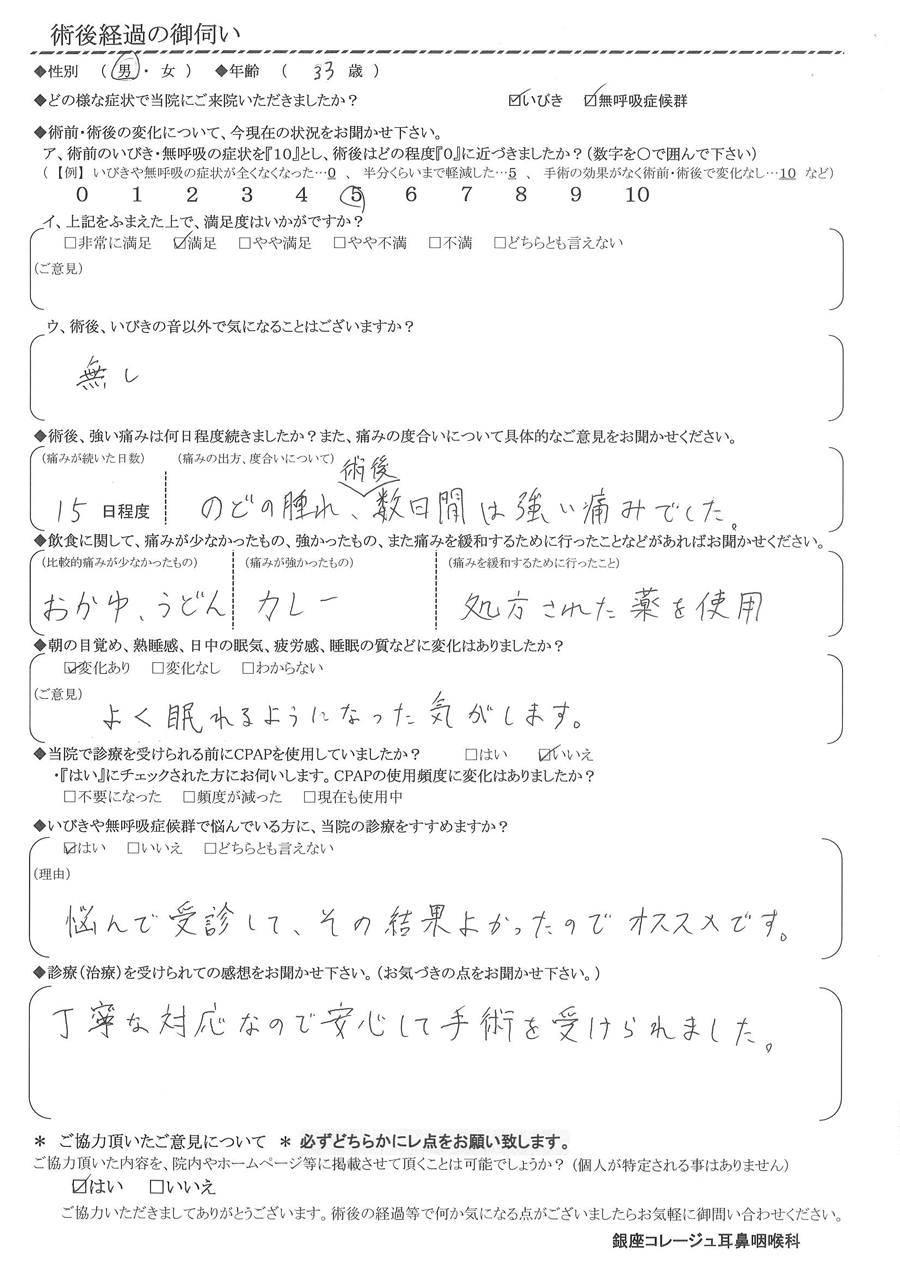 術後経過の御伺い
◆性別 （ 男 ・ 女 ） ◆年齢 （ 33 歳 ）
◆どの様な症状で当院にご来院いただきましたか？ ☑いびき ☑無呼吸症候群
◆術前・術後の変化について、今現在の状況をお聞かせ下さい。
ア、術前のいびき・無呼吸の症状を『10』とし、術後はどの程度『0』に近づきましたか？（数字を〇で囲んで下さい）
（ 【例】 いびきや無呼吸の症状が全くなくなった…0 、 半分くらいまで軽減した…5 、 手術の効果がなく術前・術後で変化なし…10 など）
0 1 2 3 4 5 6 7 8 9 10
イ、上記をふまえた上で、満足度はいかがですか？
□非常に満足 ☑満足 □やや満足 □やや不満 □不満 □どちらとも言えない
（ご意見）
ウ、術後、いびきの音以外で気になることはございますか？
無し
◆術後、強い痛みは何日程度続きましたか？また、痛みの度合いについて具体的なご意見をお聞かせください。
（痛みが続いた日数） （痛みの出方、度合いについて）
術後
15 日程度 のどの腫れ、数日間は強い痛みでした。
◆飲食に関して、痛みが少なかったもの、強かったもの、また痛みを緩和するために行ったことなどがあればお聞かせください。
（比較的痛みが少なかったもの） （痛みが強かったもの） （痛みを緩和するために行ったこと）
おかゆ、うどん カレー 処方された薬を使用
◆朝の目覚め、熟睡感、日中の眠気、疲労感、睡眠の質などに変化はありましたか？
☑変化あり □変化なし □わからない
（ご意見）
よく眠れるようになった気がします。
◆当院で診療を受けられる前にCPAPを使用していましたか？ □はい ☑いいえ
・『はい』にチェックされた方にお伺いします。CPAPの使用頻度に変化はありましたか？
□不要になった □頻度が減った □現在も使用中
◆いびきや無呼吸症候群で悩んでいる方に、当院の診療をすすめますか？
☑はい □いいえ □どちらとも言えない
（理由）
悩んで受診して、その結果よかったのでオススメです。
◆診療（治療）を受けられての感想をお聞かせ下さい。（お気づきの点をお聞かせ下さい。）
丁寧な対応なので安心して手術を受けられました。
＊ ご協力頂いたご意見について ＊ 必ずどちらかにレ点をお願い致します。
ご協力頂いた内容を、院内やホームページ等に掲載させて頂くことは可能でしょうか？（個人が特定される事はありません）
☑はい □いいえ
ご協力いただきましてありがとうございます。術後の経過等で何か気になる点がございましたらお気軽に御問い合わせください。
銀座コレージュ耳鼻咽喉科